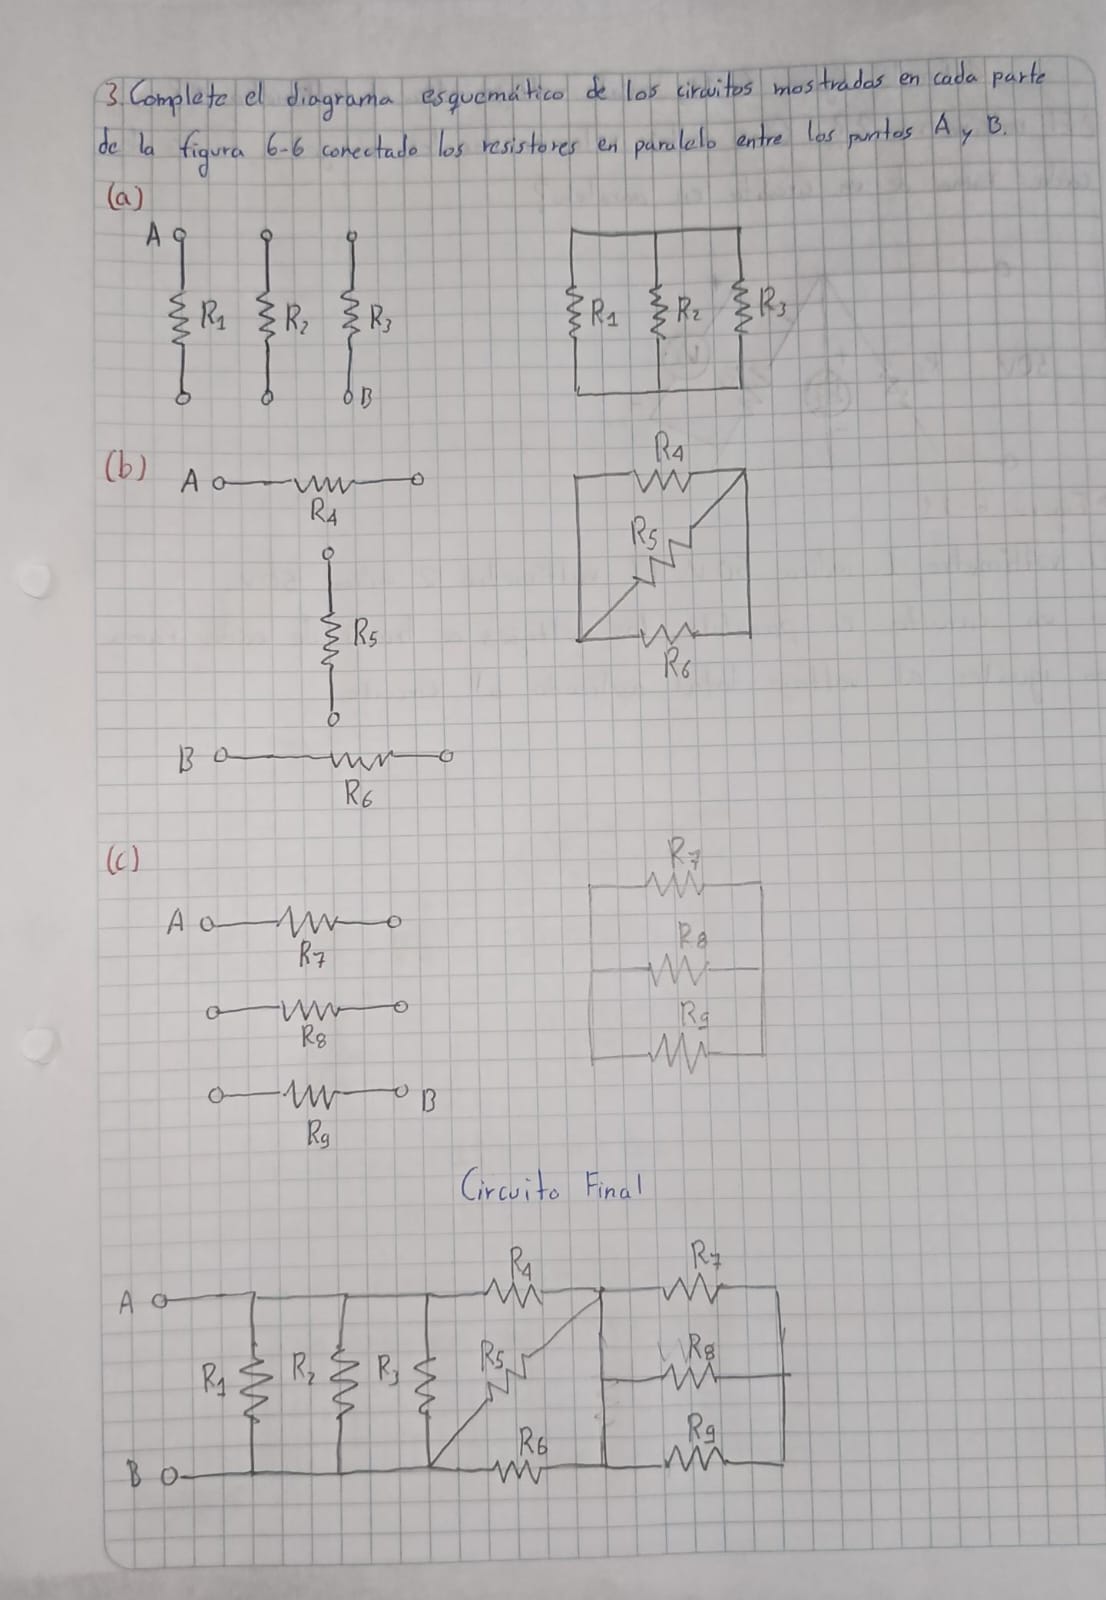 3. Complete el diagrama esquemático de los circuitos mostrados en cada parte
de la figura 6-6 conectado los resistores en paralelo entre los puntos A y B.
(a)
A
R1 R2 R3
B
R1 R2 R3
(b)
A
R4
R5
B
R6
R4
R5
R6
(c)
A
R7
R8
B
R9
R7
R8
R9
Circuito Final
A
R4 R7
R1 R2 R3 R5 R8
R6 R9
B